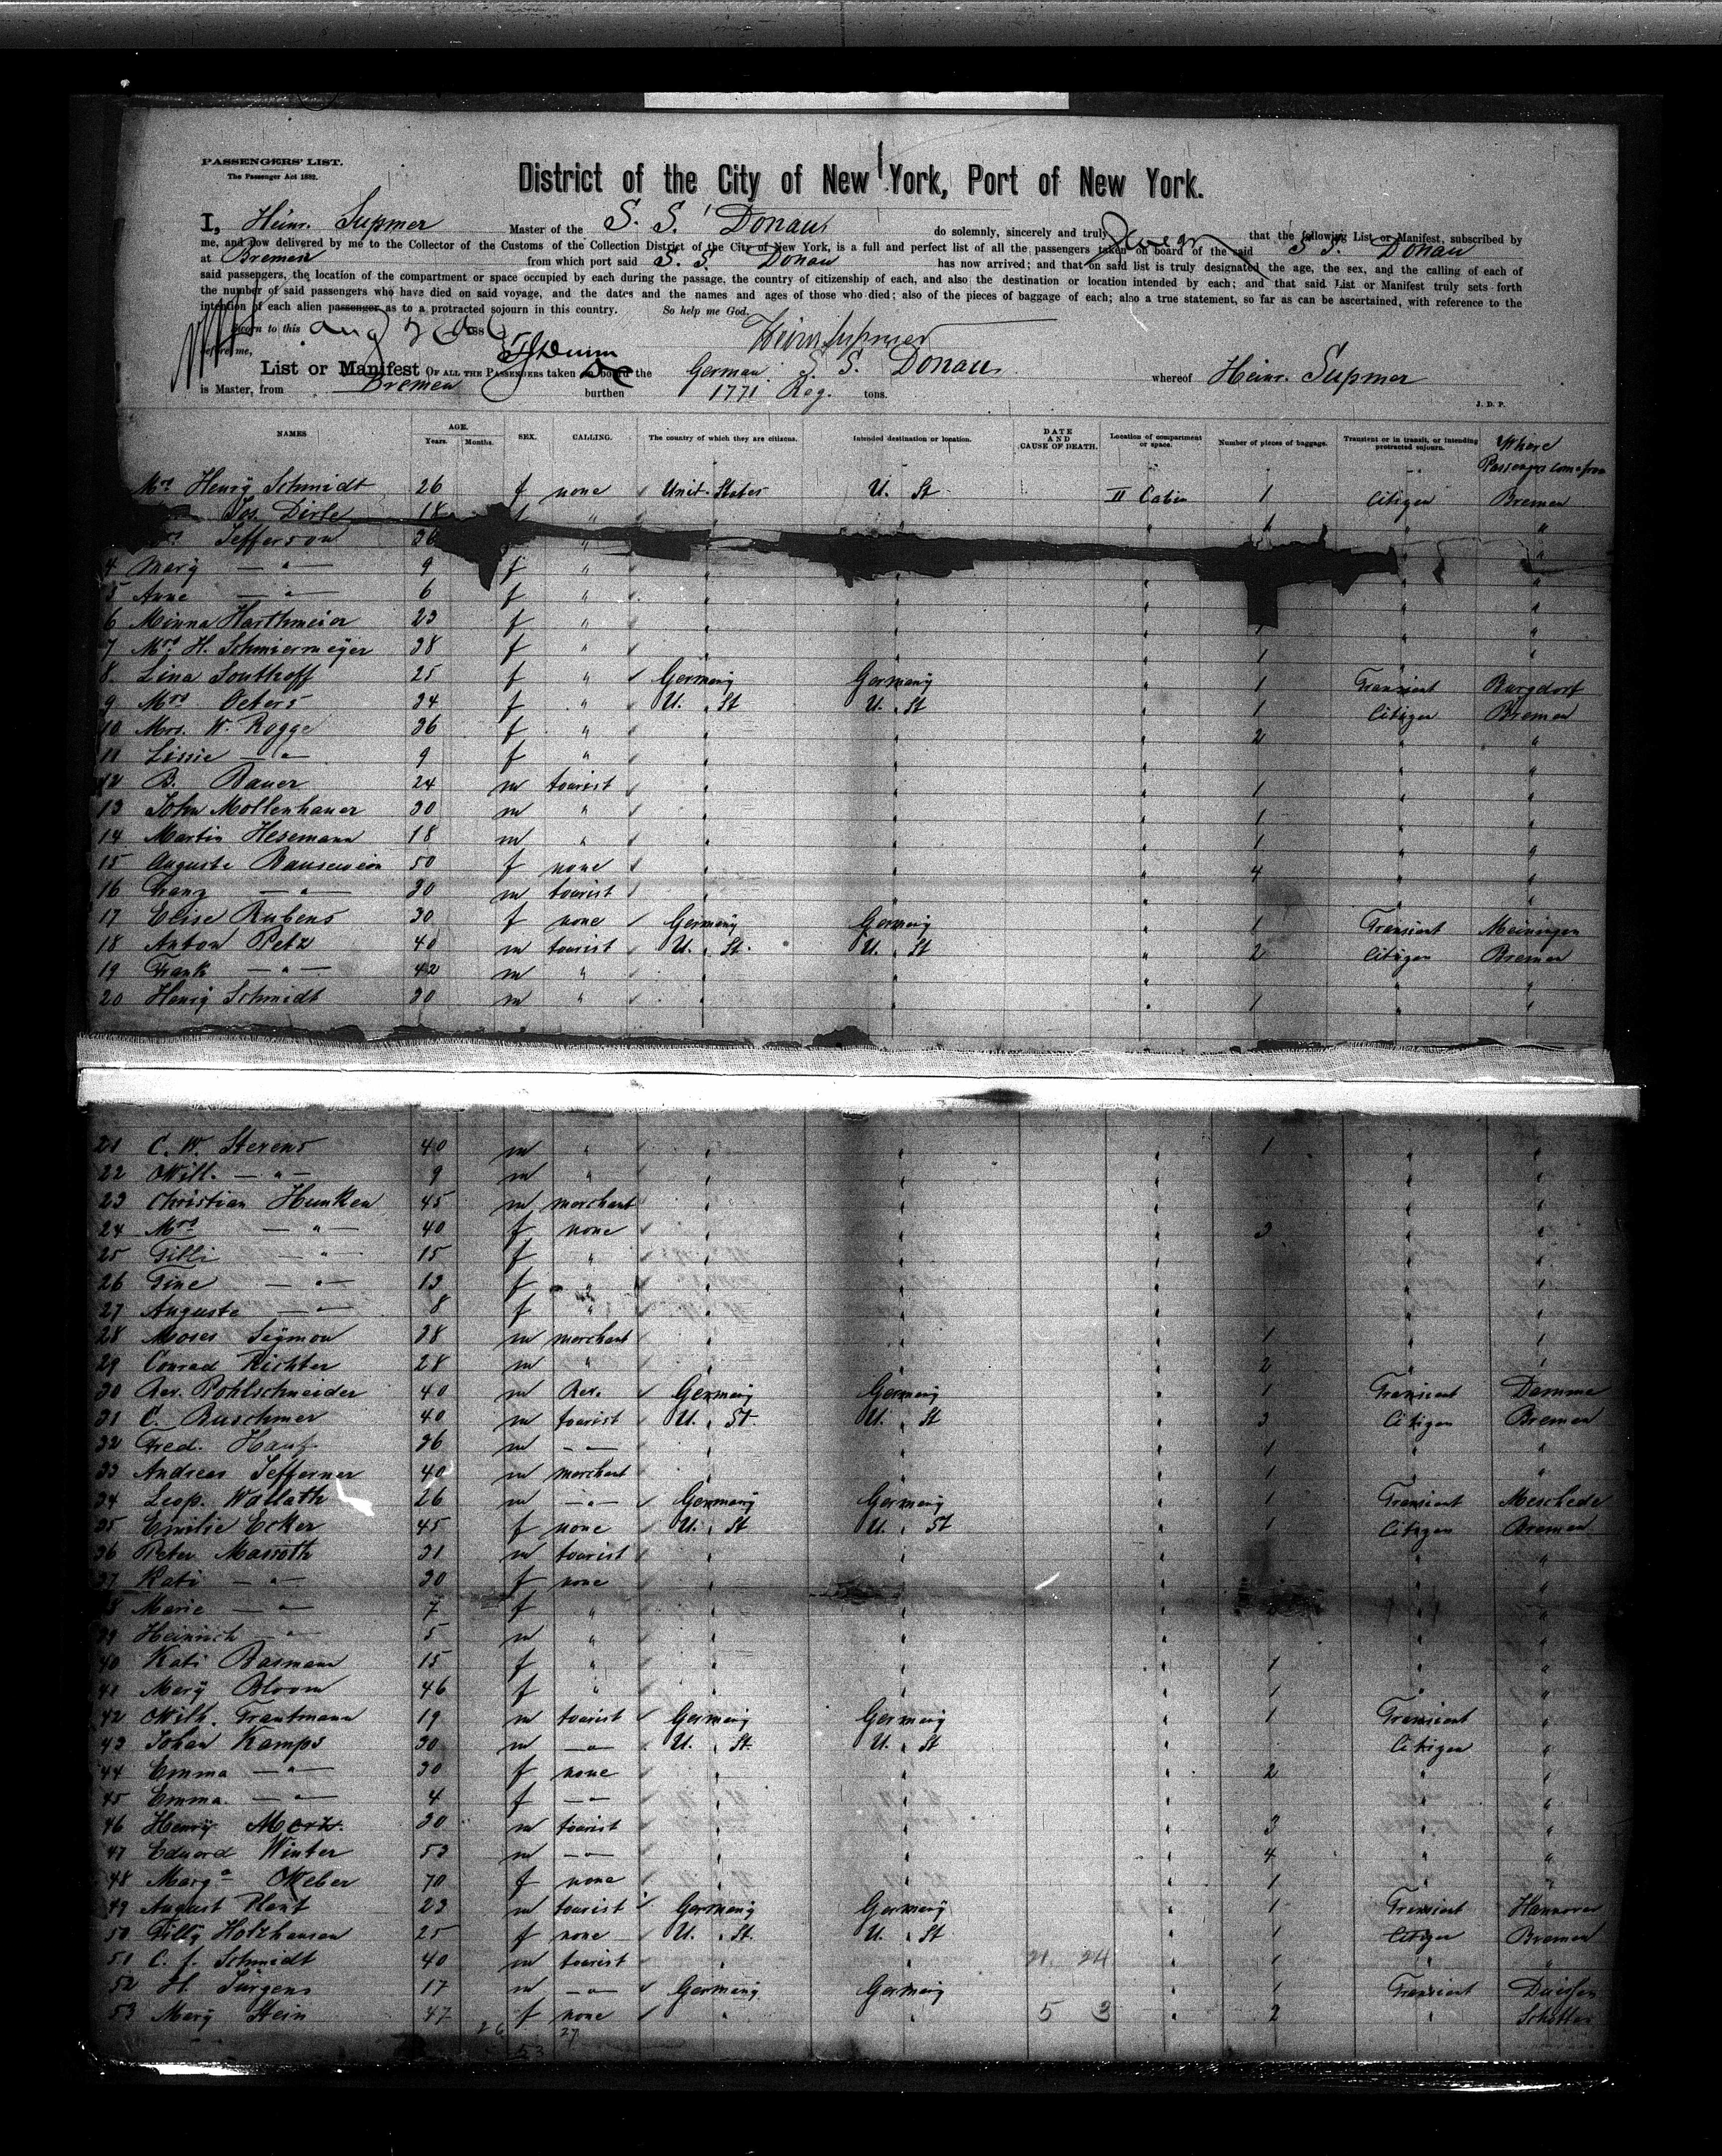 PASSENGERS' LIST.
The Passenger Act 1882.
District of the City of New York, Port of New York.
I, Heinr. Supmer Master of the S. S. Donau do solemnly, sincerely and truly swear that the following List or Manifest, subscribed by
me, and now delivered by me to the Collector of the Customs of the Collection District of the City of New York, is a full and perfect list of all the passengers taken on board of the said S. S. Donau
at Bremen from which port said S. S. Donau has now arrived; and that on said list is truly designated the age, the sex, and the calling of each of
said passengers, the location of the compartment or space occupied by each during the passage, the country of citizenship of each, and also the destination or location intended by each; and that said List or Manifest truly sets forth
the number of said passengers who have died on said voyage, and the dates and the names and ages of those who died; also of the pieces of baggage of each; also a true statement, so far as can be ascertained, with reference to the
intention of each alien passenger as to a protracted sojourn in this country. So help me God.
Sworn to this Aug 188
before me, Heinr Supmer
List or Manifest OF ALL THE PASSENGERS taken on board the German S. S. Donau whereof Heinr. Supmer
is Master, from Bremen burthen 1771 Reg. tons.
J. D. P.
NAMES AGE. Years. Months. SEX. CALLING. The country of which they are citizens. Intended destination or location. DATE AND CAUSE OF DEATH. Location of compartment or space. Number of pieces of baggage. Transient or in transit, or intending protracted sojourn. Where Passengers come from
Mrs Henry Schmidt 26 f none Unit. States U. St II Cabin 1 Citizen Bremen
Jos. Dirle 18 "
Jefferson 36 "
4 Mary — " — 9 f " "
5 Anne — " — 6 f " "
6 Minna Harthmeier 23 f " "
7 Mrs H. Schmiermeyer 38 f " 1 "
8. Lina Southoff 25 f " Germany Germany " 1 Transient Burgdorf
9 Mrs Oeters 34 f " U. St U. St " 1 Citizen Bremen
10 Mrs. W. Rogge 36 f " " " " 2 " "
11 Lissie — " — 9 f " " " " " "
12 B. Bauer 24 m tourist " " " 1 " "
13 John Mollenhauer 30 m " " " " 1 " "
14 Martin Hesemann 18 m " " " " 1 " "
15 Auguste Bausewein 50 f none " " " 4 " "
16 Franz — " — 30 m tourist " " " " "
17 Elise Rubens 30 f none Germany Germany " 1 Transient Meiningen
18 Anton Petz 40 m tourist U. St. U. St " 2 Citizen Bremen
19 Frank — " — 42 m " " " " " "
20 Henry Schmidt 30 m " " " " 1 " "
21 C. W. Stevens 40 m " " " " 1 " "
22 Will. — " — 9 m " " " " " "
23 Christian Hunken 45 m merchant " " " " "
24 Mrs — " — 40 f none " " " 3 " "
25 Tilli — " — 15 f " " " " " "
26 Tine — " — 13 f " " " " " "
27 Auguste — " — 8 f " " " " " "
28 Moses Sigmon 38 m merchant " " " 1 " "
29 Conrad Richter 28 m " " " " 2 " "
30 Rev. Pohlschneider 40 m Rev. Germany Germany " 1 Transient Damme
31 C. Buschmer 40 m tourist U. St U. St " 3 Citizen Bremen
32 Fred. Hauf 36 m — " — " " " 1 " "
33 Andreas Jefferner 40 m merchant " " " 1 " "
34 Leop. Wallath 26 m — " — Germany Germany " 1 Transient Meschede
35 Emilie Ecker 45 f none U. St U. St " 1 Citizen Bremen
36 Peter Massoth 31 m tourist " " " " "
37 Kati — " — 30 f none " " " " "
38 Marie — " — 7 f " " " " " "
39 Heinrich — " — 5 m " " " " " "
40 Kati Basmann 15 f " " " " 1 " "
41 Mary Bloom 46 f " " " " 1 " "
42 Wilh. Trautmann 19 m tourist Germany Germany " 1 Transient "
43 Johan Kamps 30 m — " — U. St. U. St " Citizen "
44 Emma — " — 30 f none " " " 2 " "
45 Emma. — " — 4 f — " — " " " " "
46 Henry 30 m tourist " " " 3 " "
47 Eduard Winter 53 m — " — " " " 4 " "
48 Marg. Weber 70 f none " " " 1 " "
49 August Plant 23 m tourist Germany Germany " 1 Transient Hannover
50 Tilly Holzhausen 25 f none U. St. U. St " 1 Citizen Bremen
51 C. f. Schmidt 40 m tourist " " 21. 24 " 1 " "
52 H. Jürgens 17 m — " — Germany Germany " 1 Transient
53 Mary Stein 47 f none " " 5 3 " 2 " Schotten
26 27
53